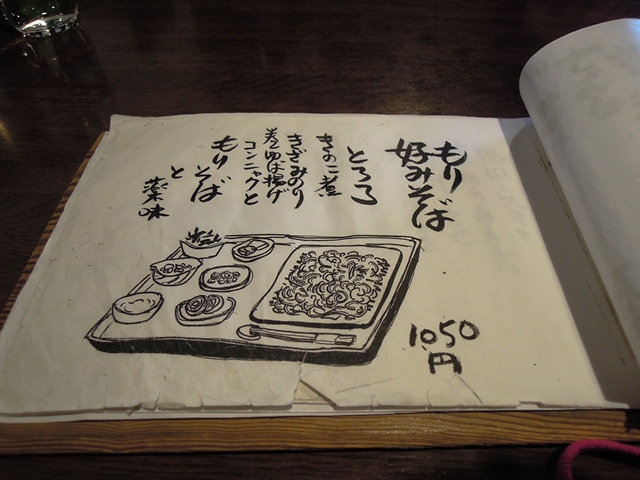 もり
好みそば
とろろ
きのこ煮
きざみのり
巻ゆば揚げ
コンニャクと
もりそば
と
薬味
1050
円